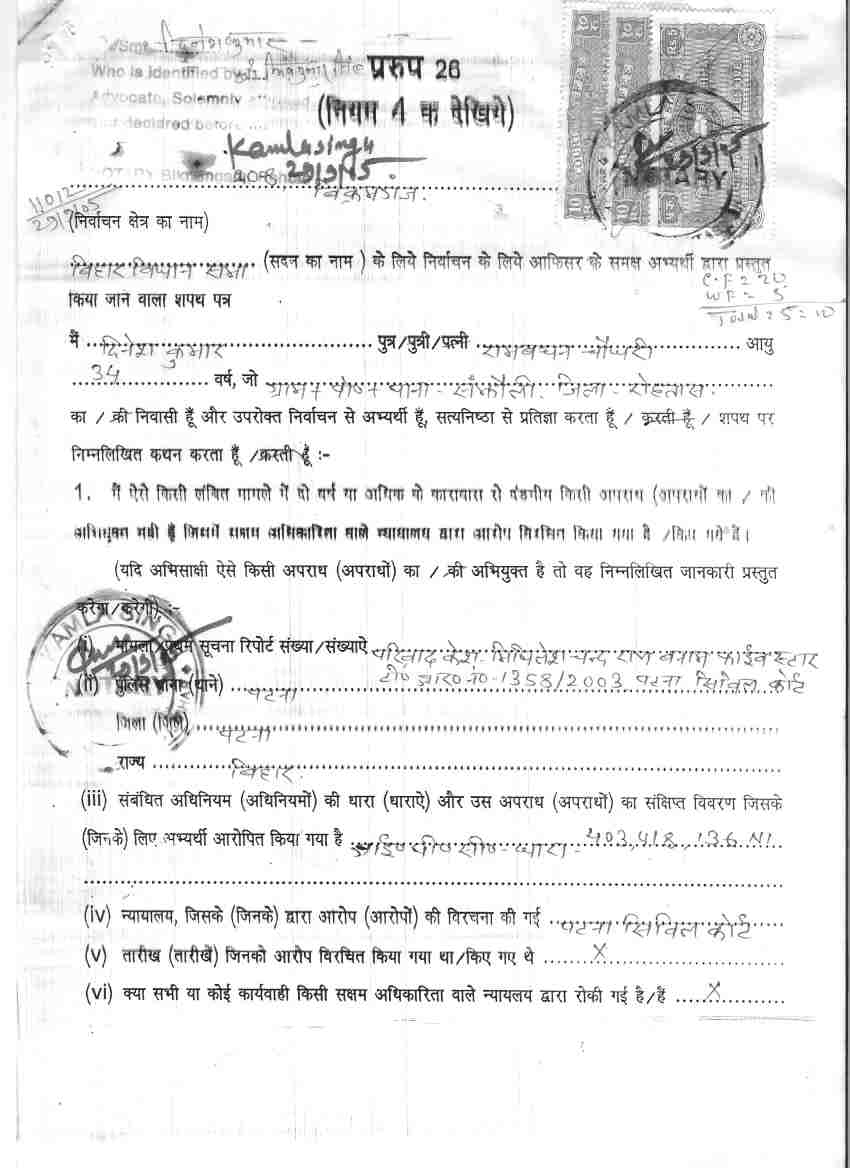 Smt दिनेश कुमार
Who is identified by
Advocate, Solemnly
declared before
प्ररुप 26
(नियम 4 क देखिये)
Kamla Singh
29/9/05
NOTARY Bikramganj
11012
29/9/05
NOTARY
बिक्रमगंज.
(निर्वाचन क्षेत्र का नाम)
बिहार विधान सभा (सदन का नाम ) के लिये निर्वाचन के लिये आफिसर के समक्ष अभ्यर्थी द्वारा प्रस्तुत
C.F = 20
किया जाने वाला शपथ पत्र
WF = 5
Total
मैं दिनेश कुमार पुत्र/पुत्री/पत्नी रामबचन चौधरी आयु
34 वर्ष, जो ग्राम+पो०+थाना- संझौली. जिला- रोहतास.
का / की निवासी हूँ और उपरोक्त निर्वाचन से अभ्यर्थी हूँ, सत्यनिष्ठा से प्रतिज्ञा करता हूँ / करती हूँ / शपथ पर
निम्नलिखित कथन करता हूँ /करती हूँ :-
1. मैं ऐसे किसी लंबित मामले में दो वर्ष या अधिक के कारावास से दंडनीय किसी अपराध (अपराधों का / की
अभियुक्त नही हूँ जिसमें सक्षम अधिकारिता वाले न्यायालय द्वारा आरोप विरचित किया गया है /किए गये हैं।
(यदि अभिसाक्षी ऐसे किसी अपराध (अपराधों) का / की अभियुक्त है तो वह निम्नलिखित जानकारी प्रस्तुत
करेगा/करेगी) :-
KAMLA SINGH
NOTARY
(i) मामला/प्रथम सूचना रिपोर्ट संख्या/संख्याऐं परिवाद केश- मिथिलेश चन्द राज बनाम फाईव स्टार
टी० आर० नं०-1358/2003 पटना सिविल कोर्ट
(ii) पुलिस थाना (थाने) पटना
जिला (जिले) पटना
राज्य बिहार.
(iii) संबंधित अधिनियम (अधिनियमों) की धारा (धाराऐ) और उस अपराध (अपराधों) का संक्षिप्त विवरण जिसके
(जिनके) लिए अभ्यर्थी आरोपित किया गया है आई० पी० सी०-धारा- 403,418, 136 NI
(iv) न्यायालय, जिसके (जिनके) द्वारा आरोप (आरोपों) की विरचना की गई पटना सिविल कोर्ट
(v) तारीख (तारीखें) जिनको आरोप विरचित किया गया था/किए गए थे X
(vi) क्या सभी या कोई कार्यवाही किसी सक्षम अधिकारिता वाले न्यायलय द्वारा रोकी गई है/हैं X